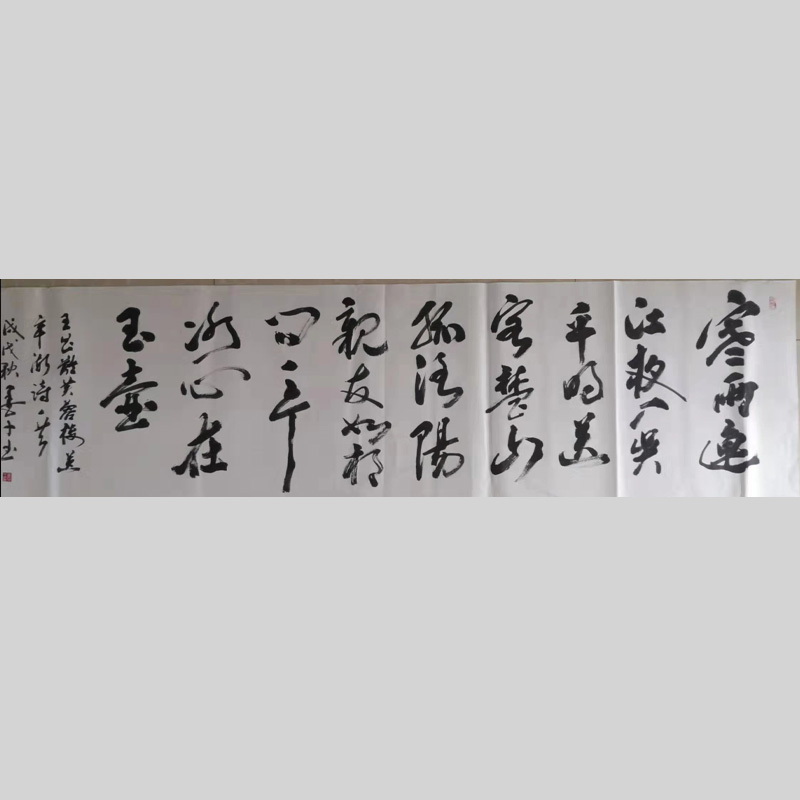 寒雨連
江夜入吳
平明送
客楚山
孤洛陽
親友如相
问一片
冰心在
玉壺
王昌齡芙蓉楼送
辛渐詩一首
戊戌秋